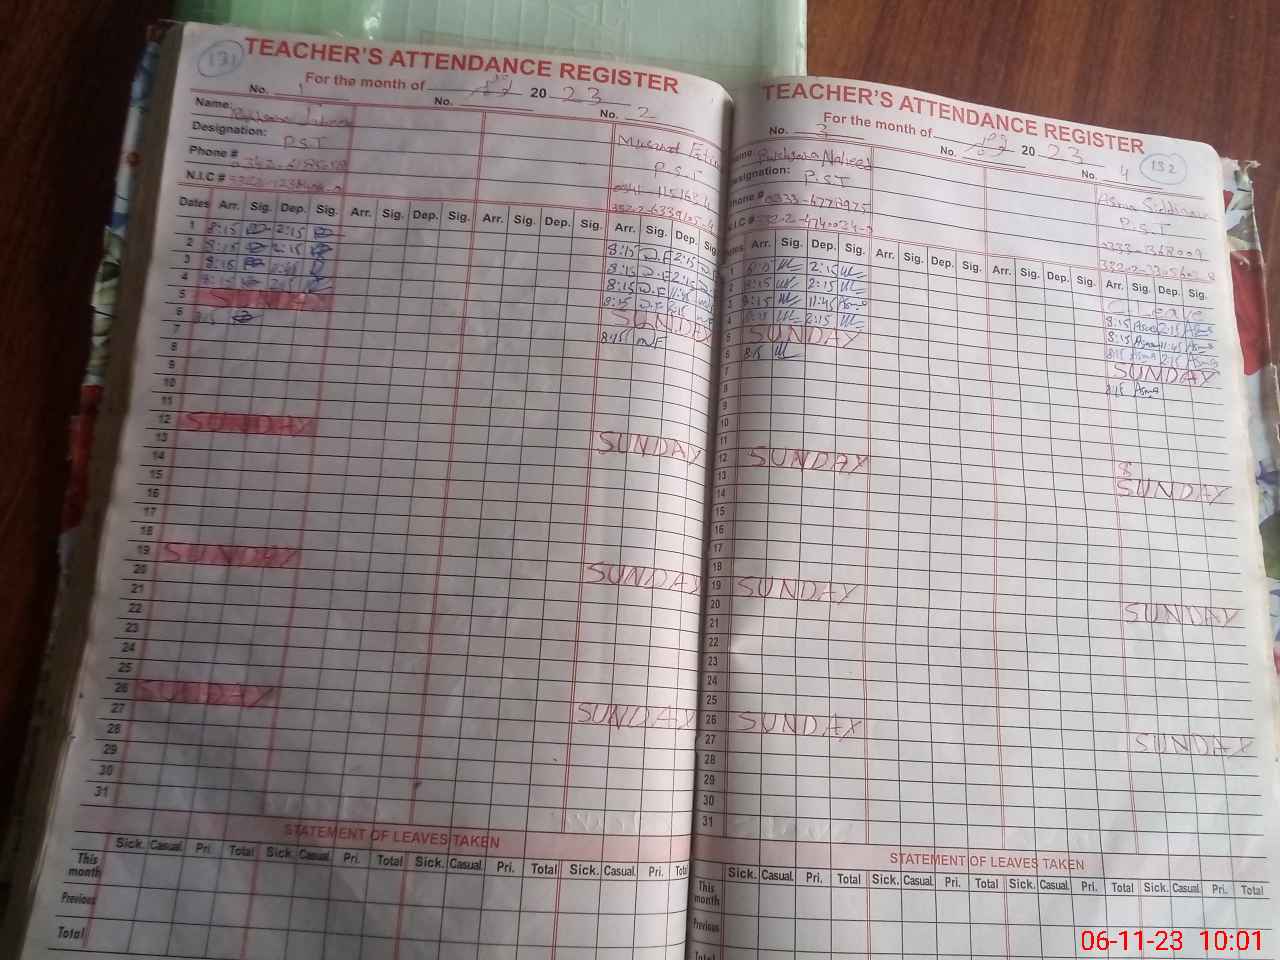 131
TEACHER'S ATTENDANCE REGISTER
For the month of 20 23
No. 1 No. No. 2
Name:
Designation: P.S.T
Phone #
N.I.C #
Musarat
P.S.T
Dates Arr. Sig. Dep. Sig. Arr. Sig. Dep. Sig. Arr. Sig. Dep. Sig. Arr. Sig. Dep. Sig.
1 8:15 2:15 8:15 2:15
2 8:15 2:15 8:15 2:15
3 8:15 11:45 8:15 11:45
4 8:15 2:15 8:15 2:15
5 SUNDAY SUNDAY
6 8:15 8:15
7
8
9
10
11
12 SUNDAY SUNDAY
13
14
15
16
17
18
19 SUNDAY SUNDAY
20
21
22
23
24
25
26 SUNDAY SUNDAY
27
28
29
30
31
STATEMENT OF LEAVES TAKEN
Sick. Casual. Pri. Total Sick. Casual. Pri. Total Sick. Casual. Pri. Total Sick. Casual. Pri. Total
This month
Previous
Total
TEACHER'S ATTENDANCE REGISTER
For the month of 20 23
132
No. 3 No. No. 4
Name: Naheed
Designation: P.S.T
Phone # 0333-4778975
N.I.C #
Asma
P.S.T
Dates Arr. Sig. Dep. Sig. Arr. Sig. Dep. Sig. Arr. Sig. Dep. Sig. Arr. Sig. Dep. Sig.
1 8:15 2:15 Leave
2 8:15 2:15 8:15 Asma 2:15 Asma
3 8:15 11:45 Asma 8:15 Asma 11:45 Asma
4 8:15 2:15 8:15 Asma 2:15 Asma
5 SUNDAY SUNDAY
6 8:15 8:15 Asma
7
8
9
10
11
12 SUNDAY SUNDAY
13
14
15
16
17
18
19 SUNDAY SUNDAY
20
21
22
23
24
25
26 SUNDAY SUNDAY
27
28
29
30
31
STATEMENT OF LEAVES TAKEN
Sick. Casual. Pri. Total Sick. Casual. Pri. Total Sick. Casual. Pri. Total Sick. Casual. Pri. Total
This month
Previous
Total
06-11-23 10:01